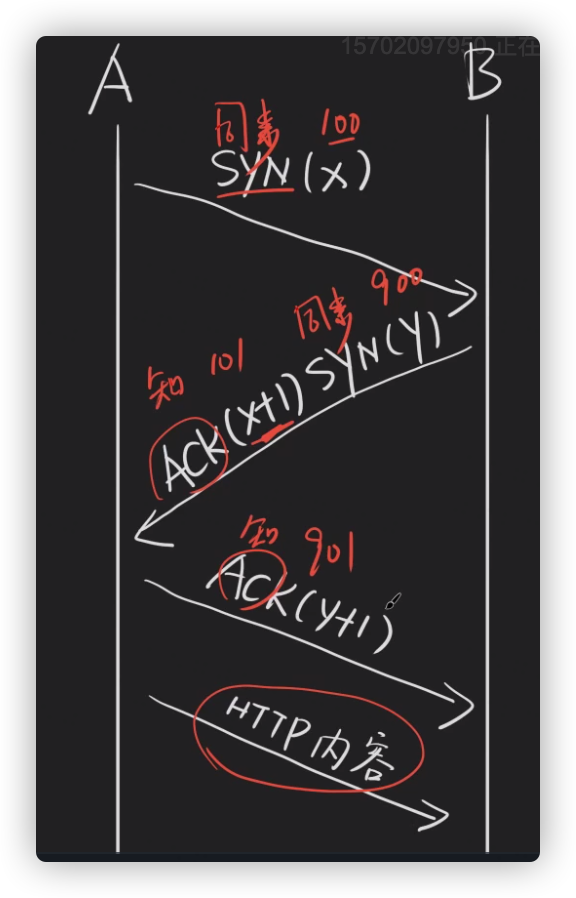 15702097950 正在
A
B
同 100
SYN(x)
同 900
SYN(y)
知 101
ACK(x+1)
知 901
ACK(y+1)
HTTP内容